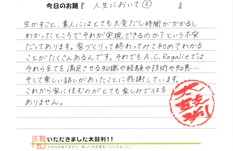 今日のお題『 人生において② 』
生かすこと、素人にはとても大変だし時間がかかるし
わかったところでそれが実現できるのか？という不安
だってあります。家づくりって終わってみて初めてわかる
ことがたくさんあるんです。それでもA.C.Regalieでは
それら全てを満足させる知識や経験や技術や知恵…
そして楽しい話しがあったことに感謝しています。
これから家に住むのがとても楽しみで仕方
ありません。
いただきました大談判！！